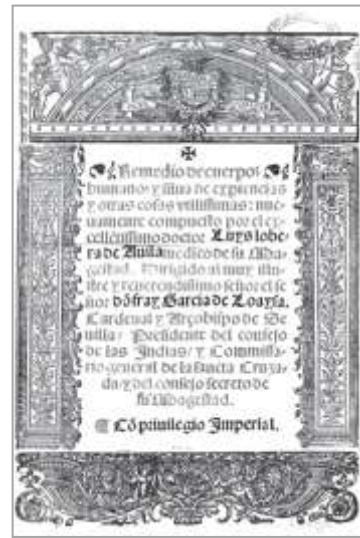 Remedio de cuerpos
humanos y silua de experiẽcias
y otras cosas vtilissimas: nue-
uamente compuesto por el ex-
cellentissimo doctor Luys lobe-
ra de Auila medico de su Ma-
gestad. Dirigido al muy illu-
stre y reuerendissimo señor el se
ñor dõ fray Garcia de Loaysa.
Cardenal y Arçobispo de Se
uilla/ Presidente del consejo
de las Indias/ y Commissa-
rio general de la sancta Cruza-
da/ y del consejo secreto de
su Magestad.
Cõ priuilegio Imperial.